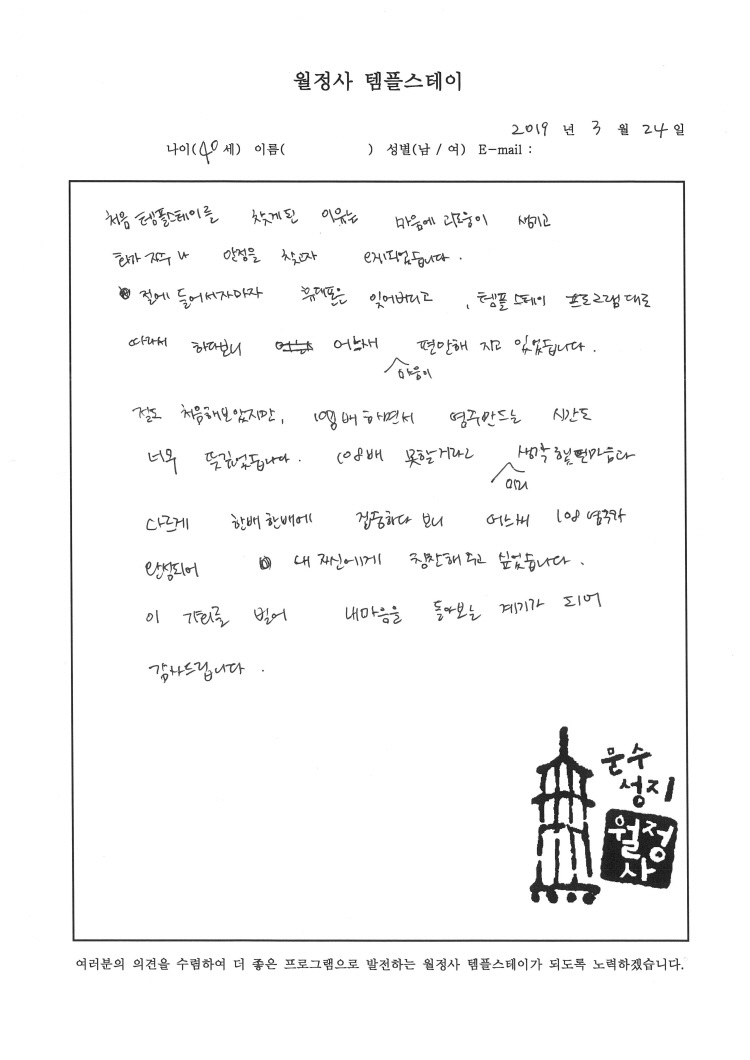 월정사 템플스테이
2019 년 3 월 24 일
나이(40 세) 이름( ) 성별(남 / 여) E-mail :
처음 템플스테이를 찾게된 이유는 마음에 괴로움이 생기고
화가 안정을 찾고자
절에 들어서자마자 휴대폰은 잊어버리고, 템플스테이 프로그램대로
따라서 하다보니 어느새 마음이 편안해 지고 있었습니다.
절도 처음해보았지만, 108배 하면서 염주만드는 시간도
너무 뜻깊었습니다. 108배 못할거라고 미리 생각했던마음과
다르게 한배한배에 집중하다 보니 어느새 108 염주가
완성되어 내 자신에게 칭찬해 주고 싶었습니다.
이 자리를 빌어 내마음을 돌아보는 계기가 되어
감사드립니다.
문수
성지
월정
사
여러분의 의견을 수렴하여 더 좋은 프로그램으로 발전하는 월정사 템플스테이가 되도록 노력하겠습니다.